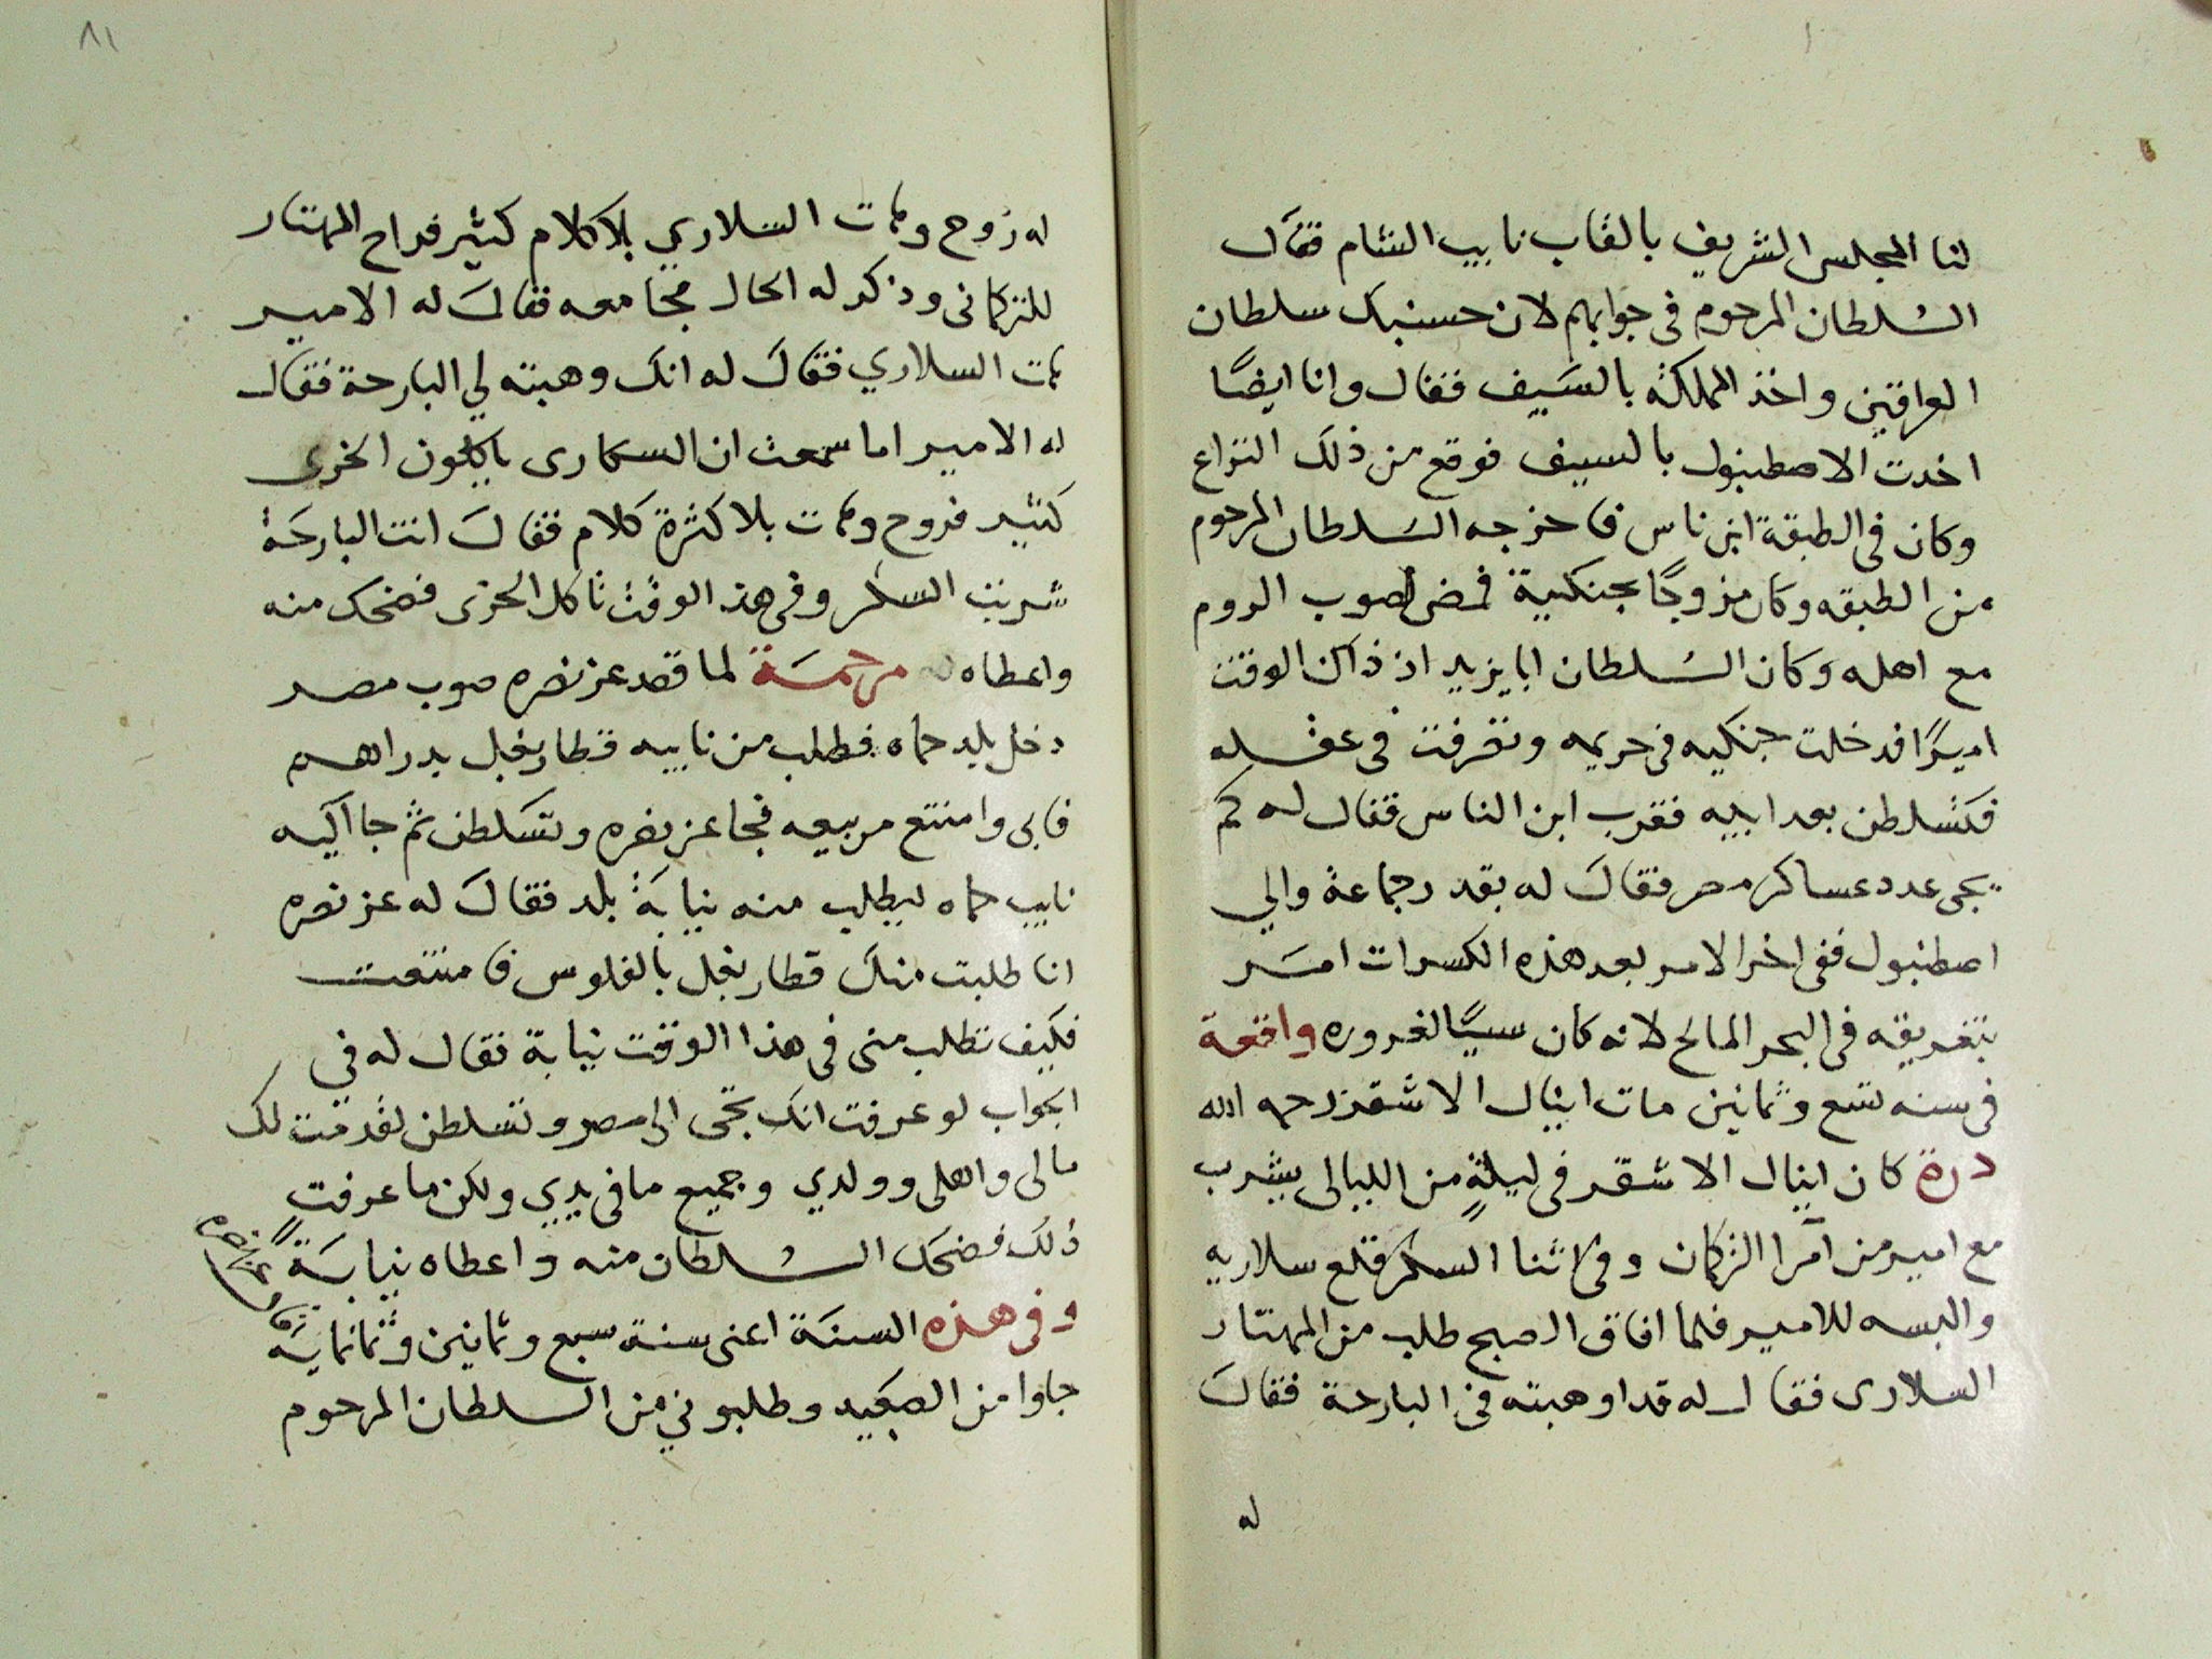 لنا المجلس الشريف بالقاب نايب الشام فقال
السلطان المرحوم فى جوابهم لان حسنبك سلطان
العراقين واخذ المملكة بالسيف فقال وانا ايضًا
اخدت الاصطنبول بالسيف فوقع من ذلك النزاع
وكان فى الطبقة ابن ناس فاخرجه السلطان المرحوم
من الطبقه وكان مزوجًا بجنكية فمضى لصوب الروم
مع اهله وكان السلطان ابايزيد اذ ذاك الوقت
اميرًا فدخلت جنكيه فى حريمه وتقرفت فى عقله
فتسلطن بعد ابيه فقرب ابن الناس فقال له كم
يجى عدد عساكر مصر فقال له بقدر جماعة والي
اصطنبول ففى اخر الامر بعد هذه الكسرات امر
بتغريقه فى البحر المالح لانه كان سببًا لغروره واقعة
فى سنه تسع وثمانين مات اينال الاشقر رحمه الله
درة كان اينال الاشقر فى ليلةٍ من الليالى يشرب
مع امير من امرا التركمان وفى اثنا السكر قلع سلاريه
والبسه للامير فلما افاق الصبح طلب من المهتار
السلارى فقال له قد اوهبته فى البارحة فقال
له
٨١
له زوح وهات السلاري بلا كلام كثير فراح المهتار
للتركمانى وذكر له الحال مجامعه فقال له الامير
هات السلاري فقال له انك وهبته لي البارحة فقال
له الامير اما سمعت ان السكارى ياكلون الخرى
كثير فروح وهات بلا كثرة كلام فقال انت البارحة
شربت السكر وفى هذ الوقت تاكل الخرى فضحك منه
واعطاه له مرحمة لما قصد عز نصره صوب مصر
دخل بلد حماه فطلب من نايبه قطار بغل بدراهم
فابى وامتنع من بيعه فجا عز نصره وتسلطن ثم جا اليه
نايب حماه ليطلب منه نيابة بلد فقال له عز نصره
انا طلبت منك قطار بغل بالفلوس فامتنعت
فكيف تطلب منى فى هذا الوقت نيابة فقال له في
الجواب لو عرفت انك تجى الى مصر وتسلطن لقدمت لك
مالى واهلى وولدي وجميع ما فى يدي ولكن ما عرفت
ذلك فضحك السلطان منه واعطاه نيابة
وفى هذه السنة اعنى سنة سبع وثمانين وثمانماية
جاوا من الصعيد وطلبوني من السلطان المرحوم